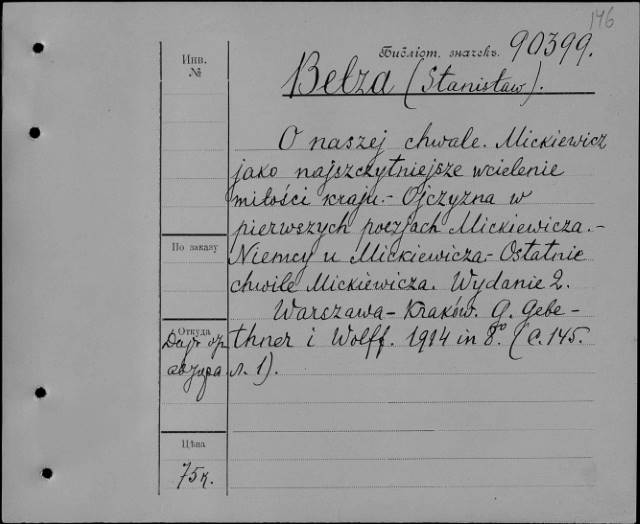 146
Библіот. значекъ. 90399.
Инв.
№
Bełza (Stanisław).
O naszej chwale. Mickiewicz
jako najszczytniejsze wcielenie
miłości kraju.- Ojczyzna w
pierwszych poezjach Mickiewicza.-
По заказу
Niemcy u Mickiewicza.- Ostatnie
chwile Mickiewicza. Wydanie 2.
Warszawa - Kraków. G. Gebe-
Откуда
thner i Wolff. 1914 in 8º. (С. 145.
л. 1).
Цѣна
75к.